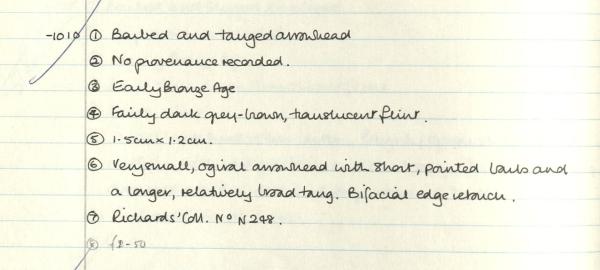 -1010 ① Barbed and tanged arrowhead
② No provenance recorded.
③ Early Bronze Age
④ Fairly dark grey-brown, translucent flint.
⑤ 1.5cm x 1.2cm.
⑥ Very small, ogival arrowhead with short, pointed barbs and
a longer, relatively broad tang. Bifacial edge retouch.
⑦ Richards' Coll. Nº N248.
⑧ £2-50